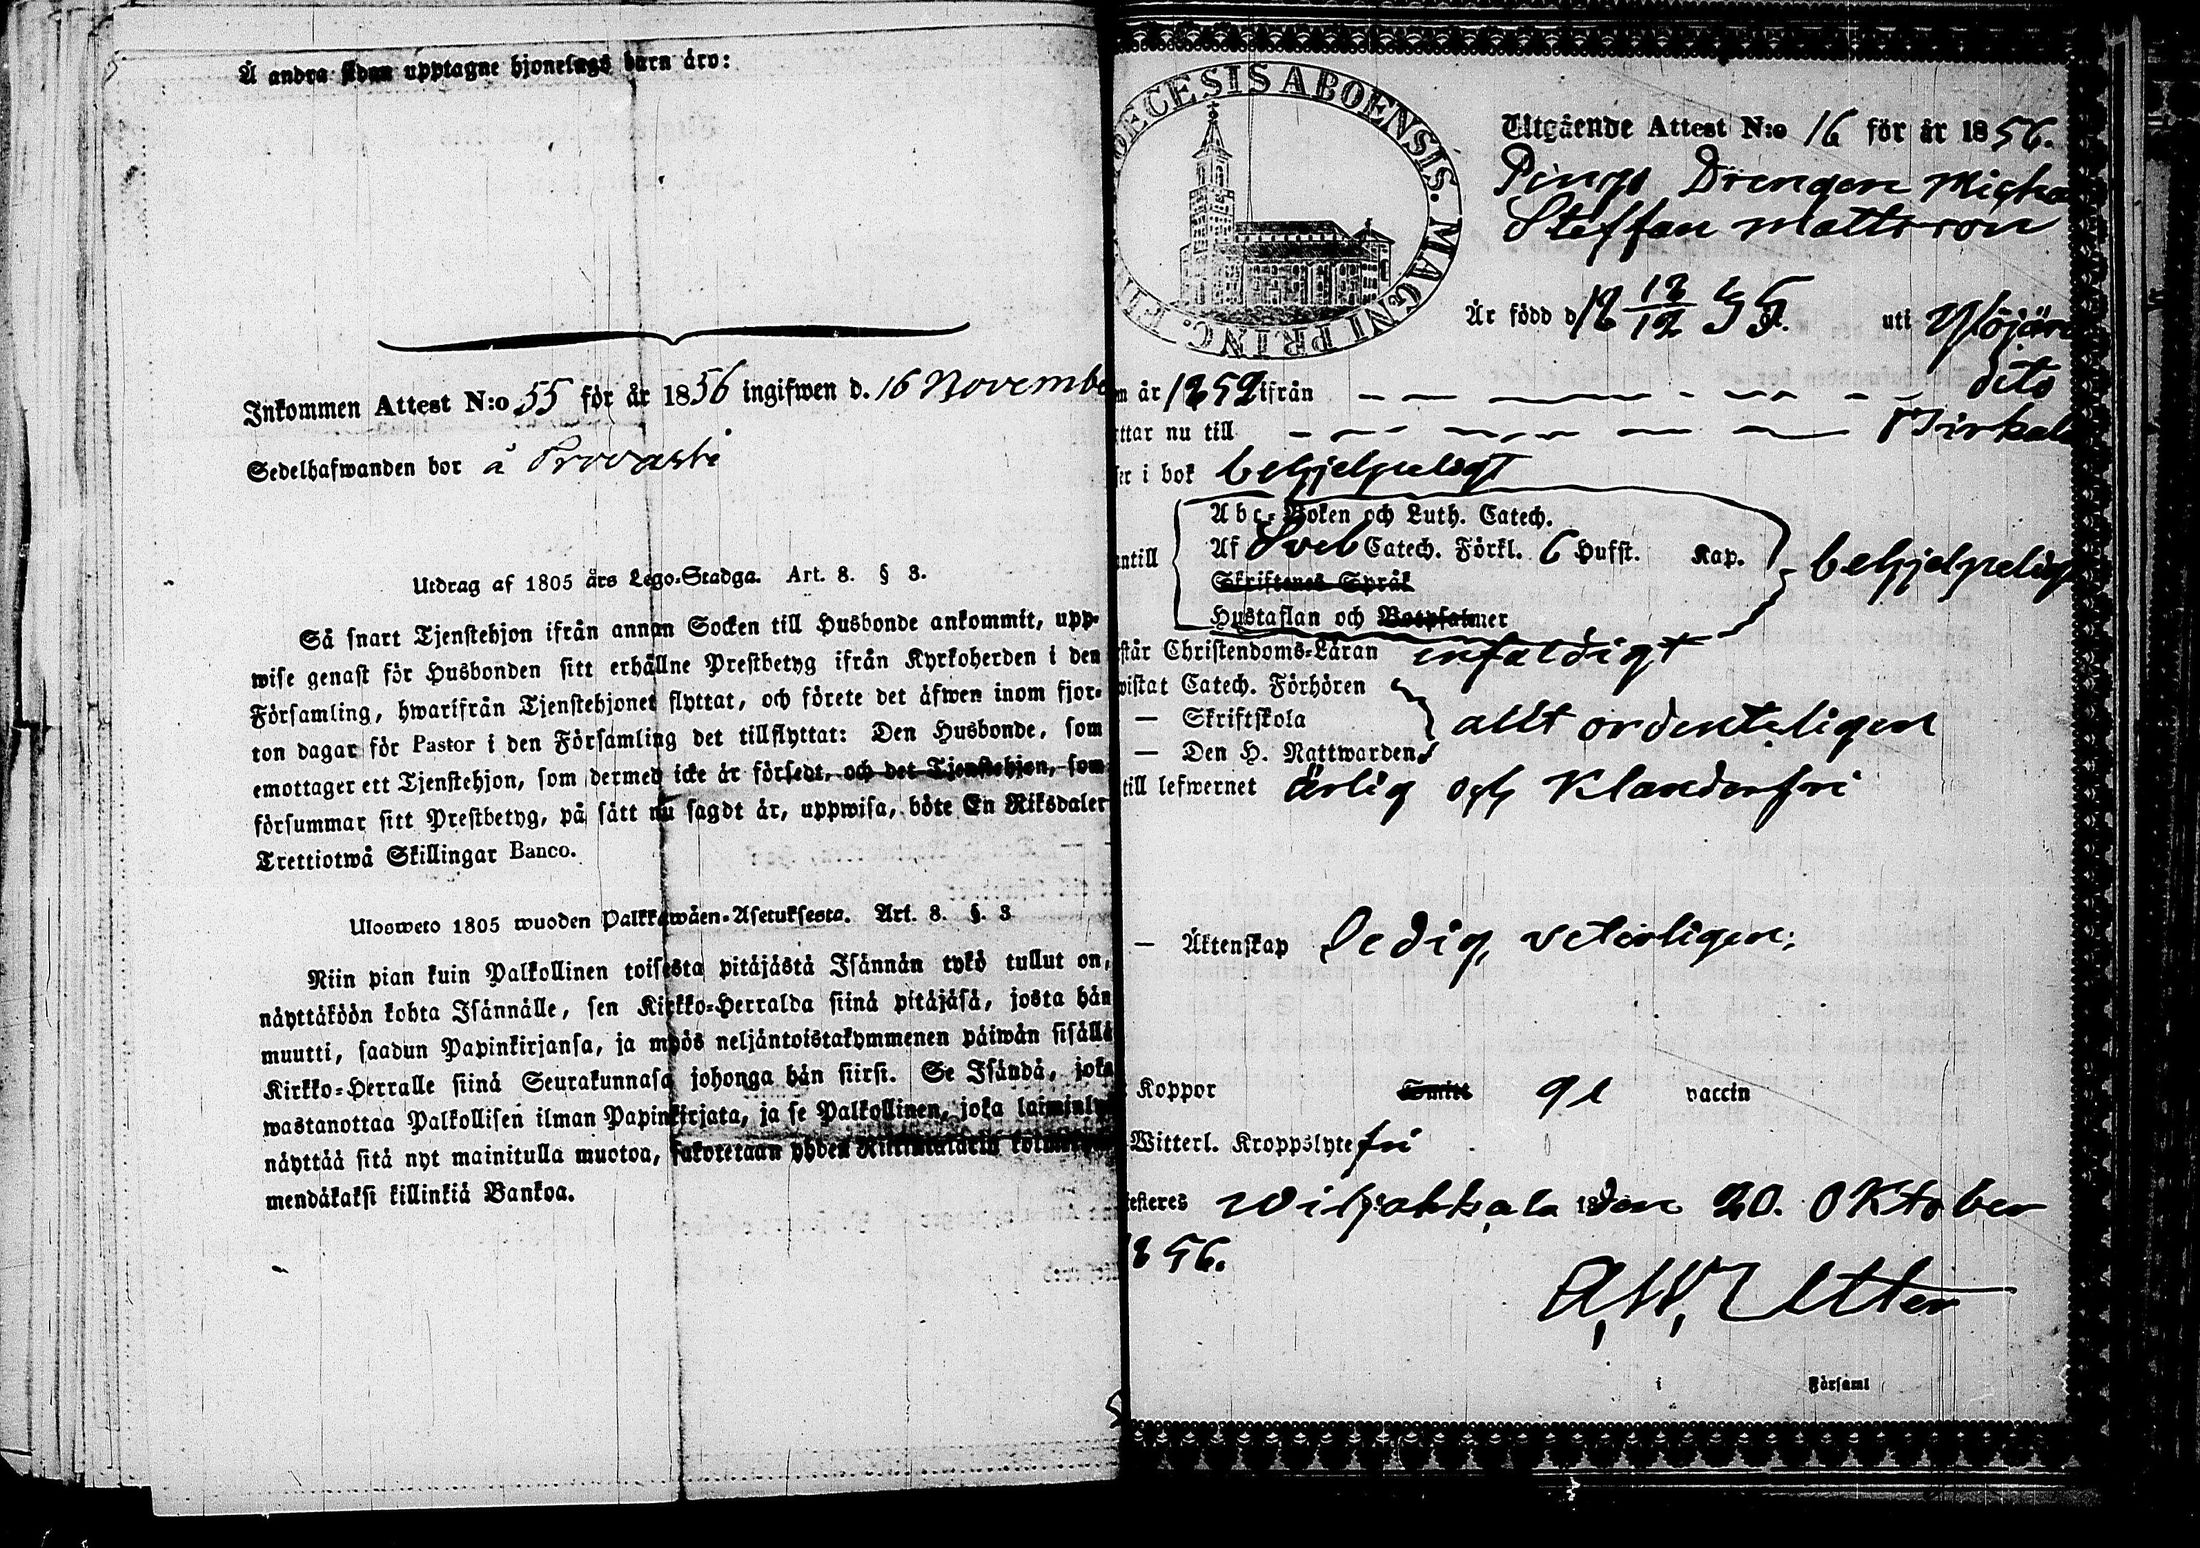 Å andra sidan upptagne hjonelags barn äro:
Inkommen Attest N:o 55 för år 1856 ingifwen d. 16 Novembe
Sedelhafwanden bor å Provasti
Utdrag af 1805 års Lego-Stadga. Art. 8. § 3.
Så snart Tjenstehjon ifrån annan Socken till Husbonde ankommit, upp-
wise genast för Husbonden sitt erhållne Prestbetyg ifrån Kyrkoherden i den
Församling, hwarifrån Tjenstehjonet flyttat, och förete det äfwen inom fjor-
ton dagar för Pastor i den Församling det tillflyttat: Den Husbonde, som
emottager ett Tjenstehjon, som dermed icke är försedt, och det Tjenstehjon, som
försummar sitt Prestbetyg, på sätt nu sagdt är, uppwisa, böte En Riksdaler
Trettiotwå Skillingar Banco.
Ulosweto 1805 wuoden Palkkawäen-Asetuksesta. Art. 8. §. 3
Niin pian kuin Palkollinen toisesta pitäjästä Isännän tykö tullut on,
näyttäköön kohta Isännälle, sen Kirkko-Herralda siinä pitäjäsä, josta hän
muutti, saadun Papinkirjansa, ja myös neljäntoistakymmenen päiwän sisällä
Kirkko-Herralle siinä Seurakunnasa johonga hän siirsi. Se Isändä, joka
wastanottaa Palkollisen ilman Papinkirjata, ja se Palkollinen, joka laiminly
näyttää sitä nyt mainitulla muotoa, sakotetaan yhden Riikintalarin kolme
mendäkaksi killinkiä Bankoa.
OECESIS ABOENSIS. MAGNI PRINC. FIN
Utgående Attest N:o 16 för år 1856.
Drengen Micha
Steffan Mattsson
Är född d 18 12/12 35. uti Ylöjär
m år 1852 ifrån — — — — dito
ttar nu till — — — — Birkala
er i bok behjelpeligt
Abc-Boken och Luth. Catech.
antill Af Sveb Catech. Förkl. 6 Hufst. Kap. behjelpeligt
Skriftenes Språk
Hustaflan och Botpsalmer
står Christendoms-Läran enfaldigt
wistat Catech. Förhören
— Skriftskola allt ordenteligen
— Den H. Nattwarden
till lefwernet ärlig och klanderfri
— Äktenskap Ledig, veterligen;
Koppor vaccin
Witterl. Kroppslyte fri
esteres Wiljakkala 18 den 20. Oktober
1856.
A. W. Utter
i Församl